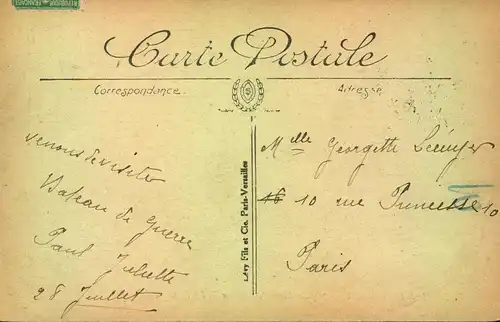 RÉPUBLIQUE FRANÇAISE
Carte Postale
Correspondance
Adresse
venons de visiter
Bateau de guerre
Paul Juliette
28 Juillet
Lévy Fils et Cie. Paris-Versailles
Melle Georgette
16 10 rue Princesse 10
Paris